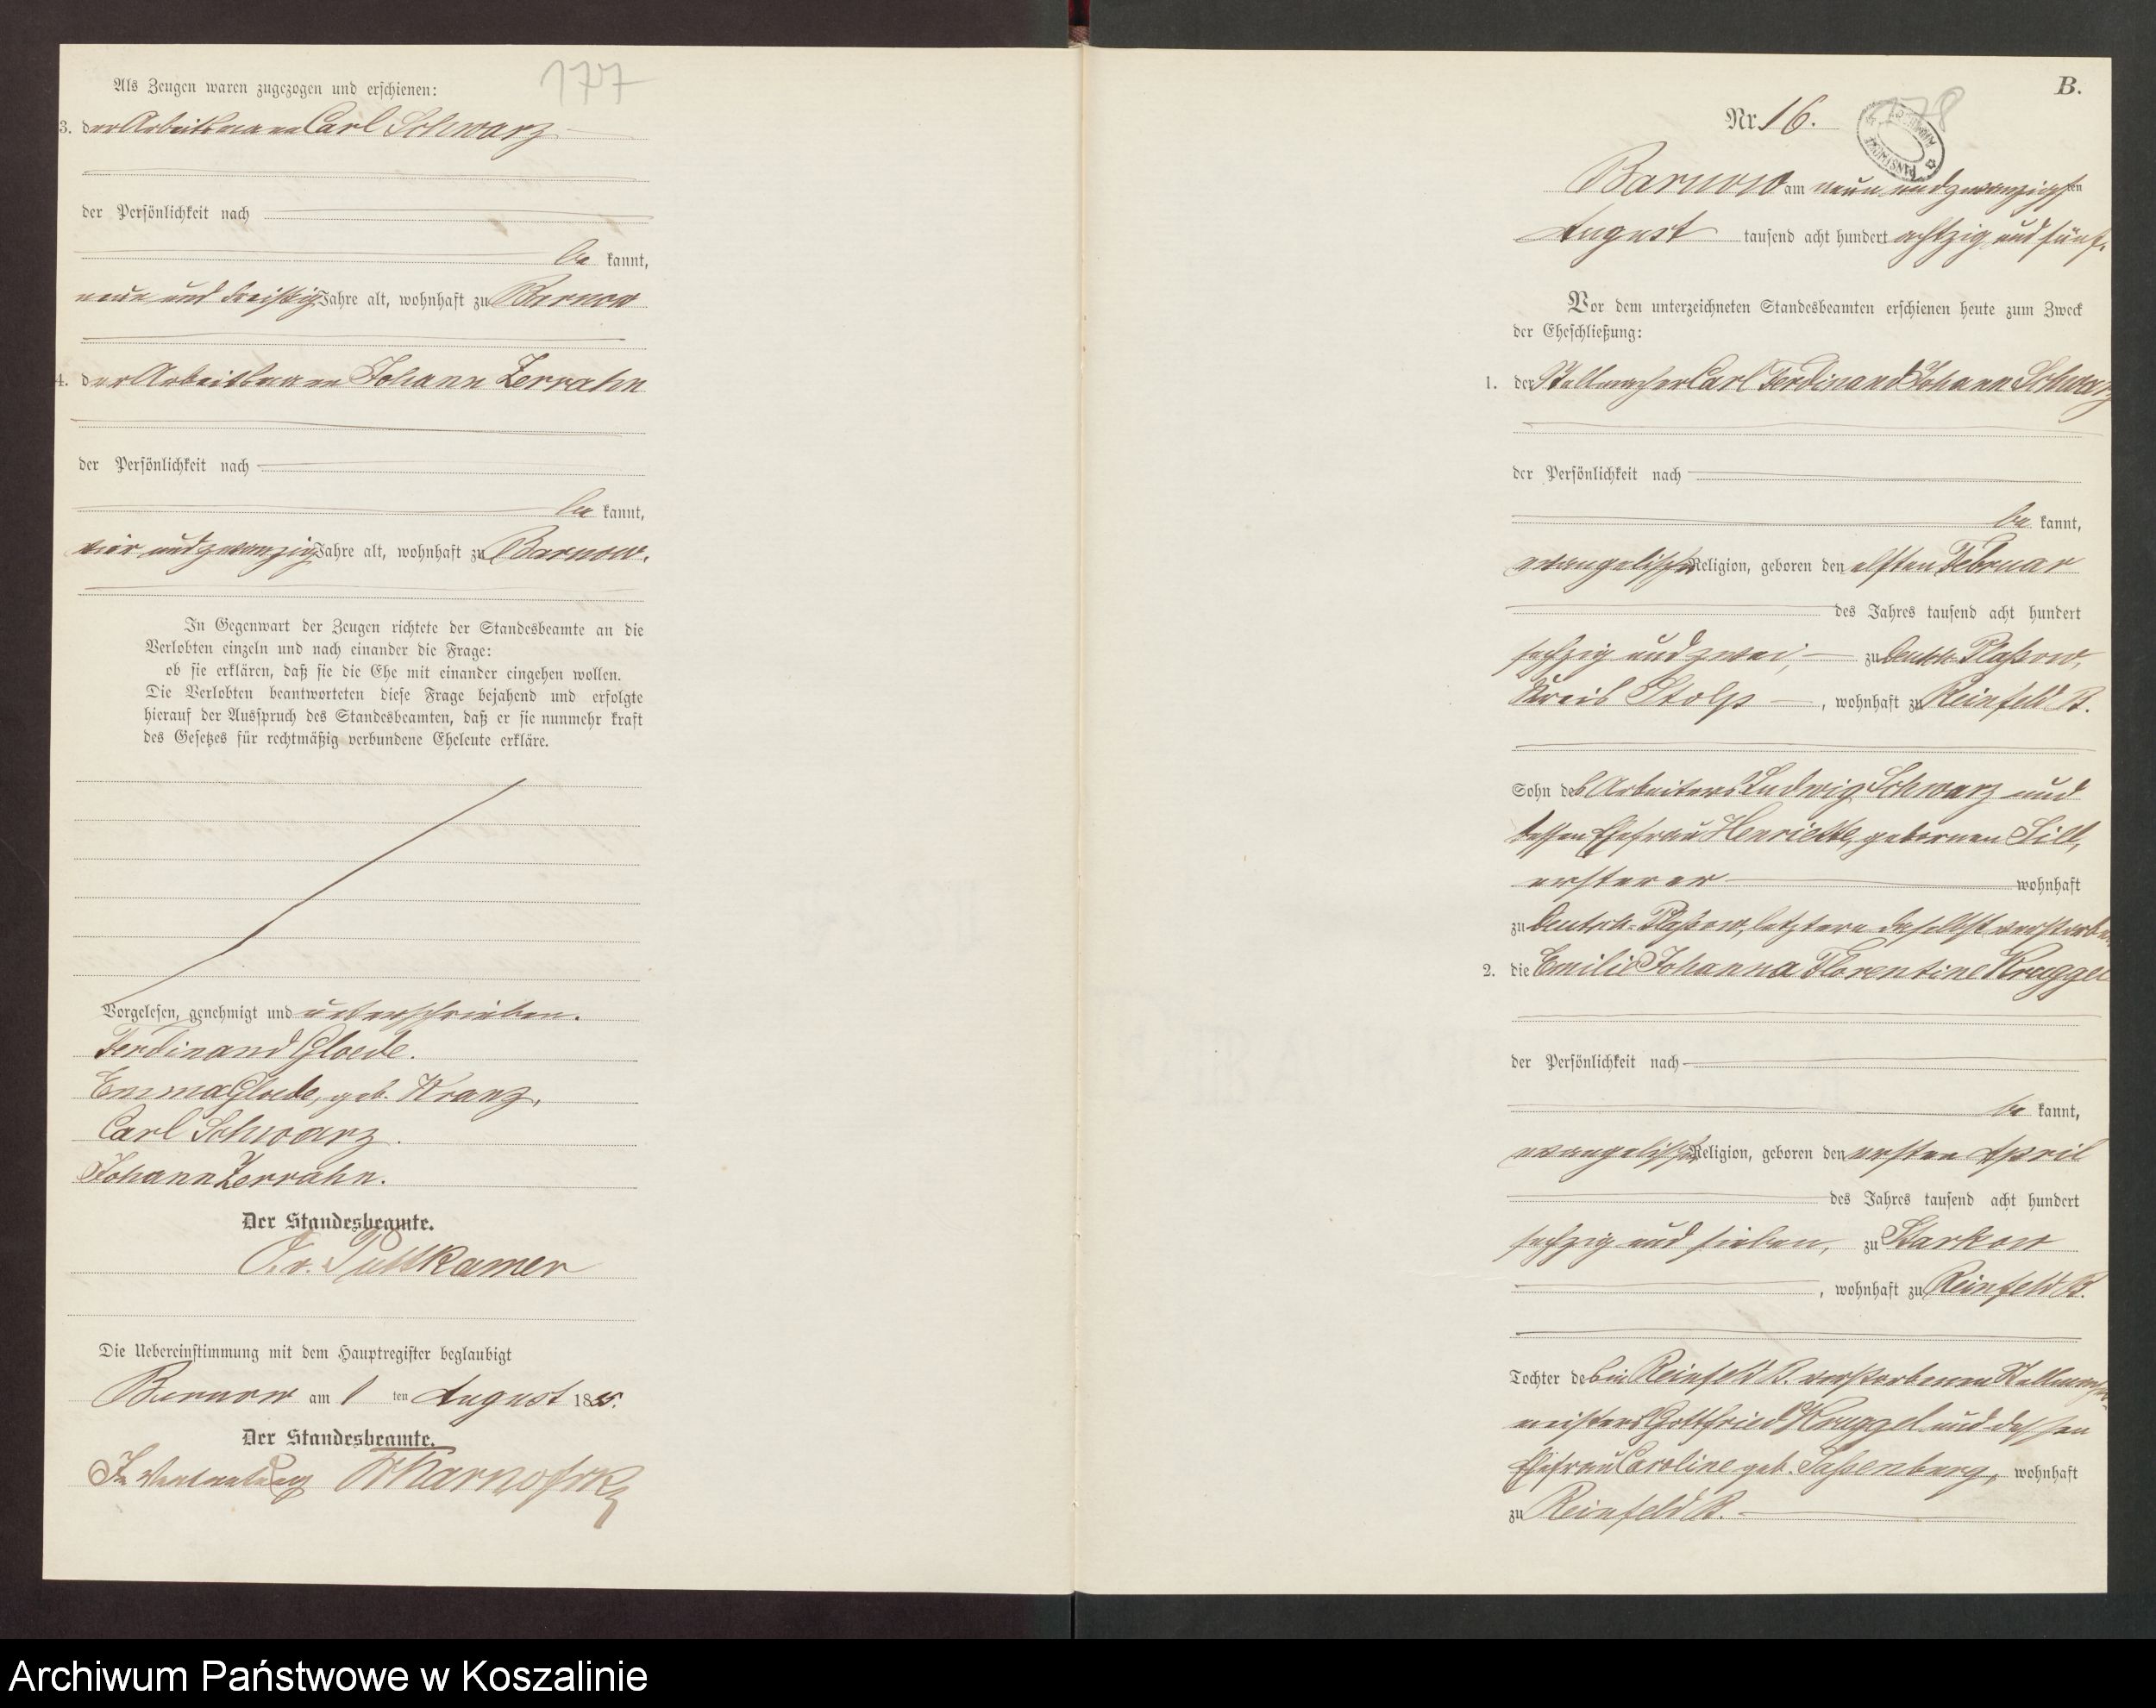 177
Als Zeugen waren zugezogen und erschienen:
3. der Arbeitsmann Carl Schwarz
der Persönlichkeit nach
be kannt,
neun und dreißig Jahre alt, wohnhaft zu Barnow
4. der Arbeitsmann Johann Zerrahn
der Persönlichkeit nach
be kannt,
vier und zwanzig Jahre alt, wohnhaft zu Barnow.
In Gegenwart der Zeugen richtete der Standesbeamte an die
Verlobten einzeln und nach einander die Frage:
ob sie erklären, daß sie die Ehe mit einander eingehen wollen.
Die Verlobten beantworteten diese Frage bejahend und erfolgte
hierauf der Ausspruch des Standesbeamten, daß er sie nunmehr kraft
des Gesetzes für rechtmäßig verbundene Eheleute erkläre.
Vorgelesen, genehmigt und unterschrieben.
Ferdinand Gloede.
Emma Gloede, geb. Kranz.
Carl Schwarz.
Johann Zerrahn.
Der Standesbeamte.
v. Puttkamer
Die Uebereinstimmung mit dem Hauptregister beglaubigt
Barnow am 1 ten August 1885.
Der Standesbeamte.
In Vertretung
B.
178
Nr. 16.
Barnow am neun und zwanzigsten
August tausend acht hundert achtzig und fünf.
Vor dem unterzeichneten Standesbeamten erschienen heute zum Zweck
der Eheschließung:
1. der Stellmacher Carl Ferdinand Johann Schwarz
der Persönlichkeit nach
be kannt,
evangelischer Religion, geboren den elften Februar
des Jahres tausend acht hundert
sechzig und zwei, zu Deutsch Plaßow,
Kreis Stolp, wohnhaft zu Reinfeld B.
Sohn des Arbeiters Ludwig Schwarz und
dessen Ehefrau Henriette, gebornen
ersterer wohnhaft
zu Deutsch-Plaßow, letztere daselbst verstorben
2. die Emilie Johanna Florentine Kruggel
der Persönlichkeit nach
be kannt,
evangelischer Religion, geboren den ersten April
des Jahres tausend acht hundert
sechzig und sieben, zu Starkow
, wohnhaft zu Reinfeld B.
Tochter des in Reinfeld B. verstorbenen Stellmacher-
meisters Gottfried Kruggel und dessen
Ehefrau Caroline geb. Paßenberg, wohnhaft
zu Reinfeld B.
Archiwum Państwowe w Koszalinie